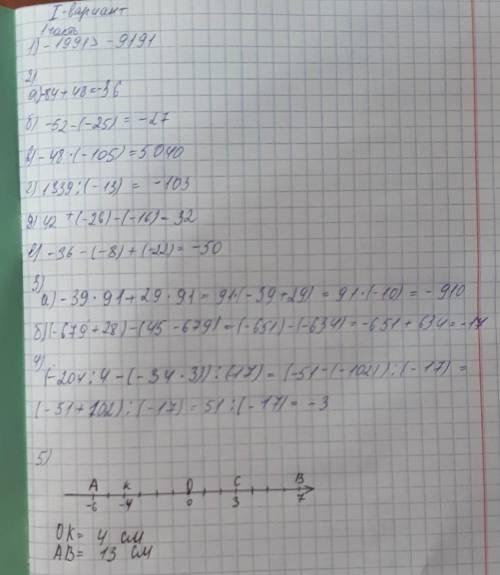 I-вариант
1 часть
1) -1991 > -9191
2)
а) -84+48=-36
б) -52-(-25)=-27
в) -48·(-105)=5040
г) 1339:(-13) = -103
д) 42+(-26)-(-16)=32
е) -36-(-8)+(-22)=-50
3)
а) -39·91+29·91=91·(-39+29)=91·(-10)=-910
б) (-679+28)-(45-679)=(-651)-(-634)=-651+634=-17
4)
(-204:4-(-34·3)):(-17)=(-51-(-102)):(-17)=
(-51+102):(-17)=51:(-17)=-3
5)
A K O C B
-6 -4 0 3 7
OK= 4 см
AB= 13 см